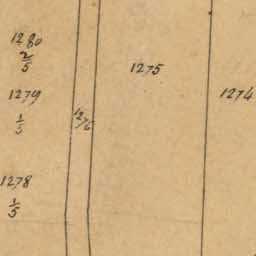 1280
2/5
1275
1279
1274
1/5
1276
1278
1/5